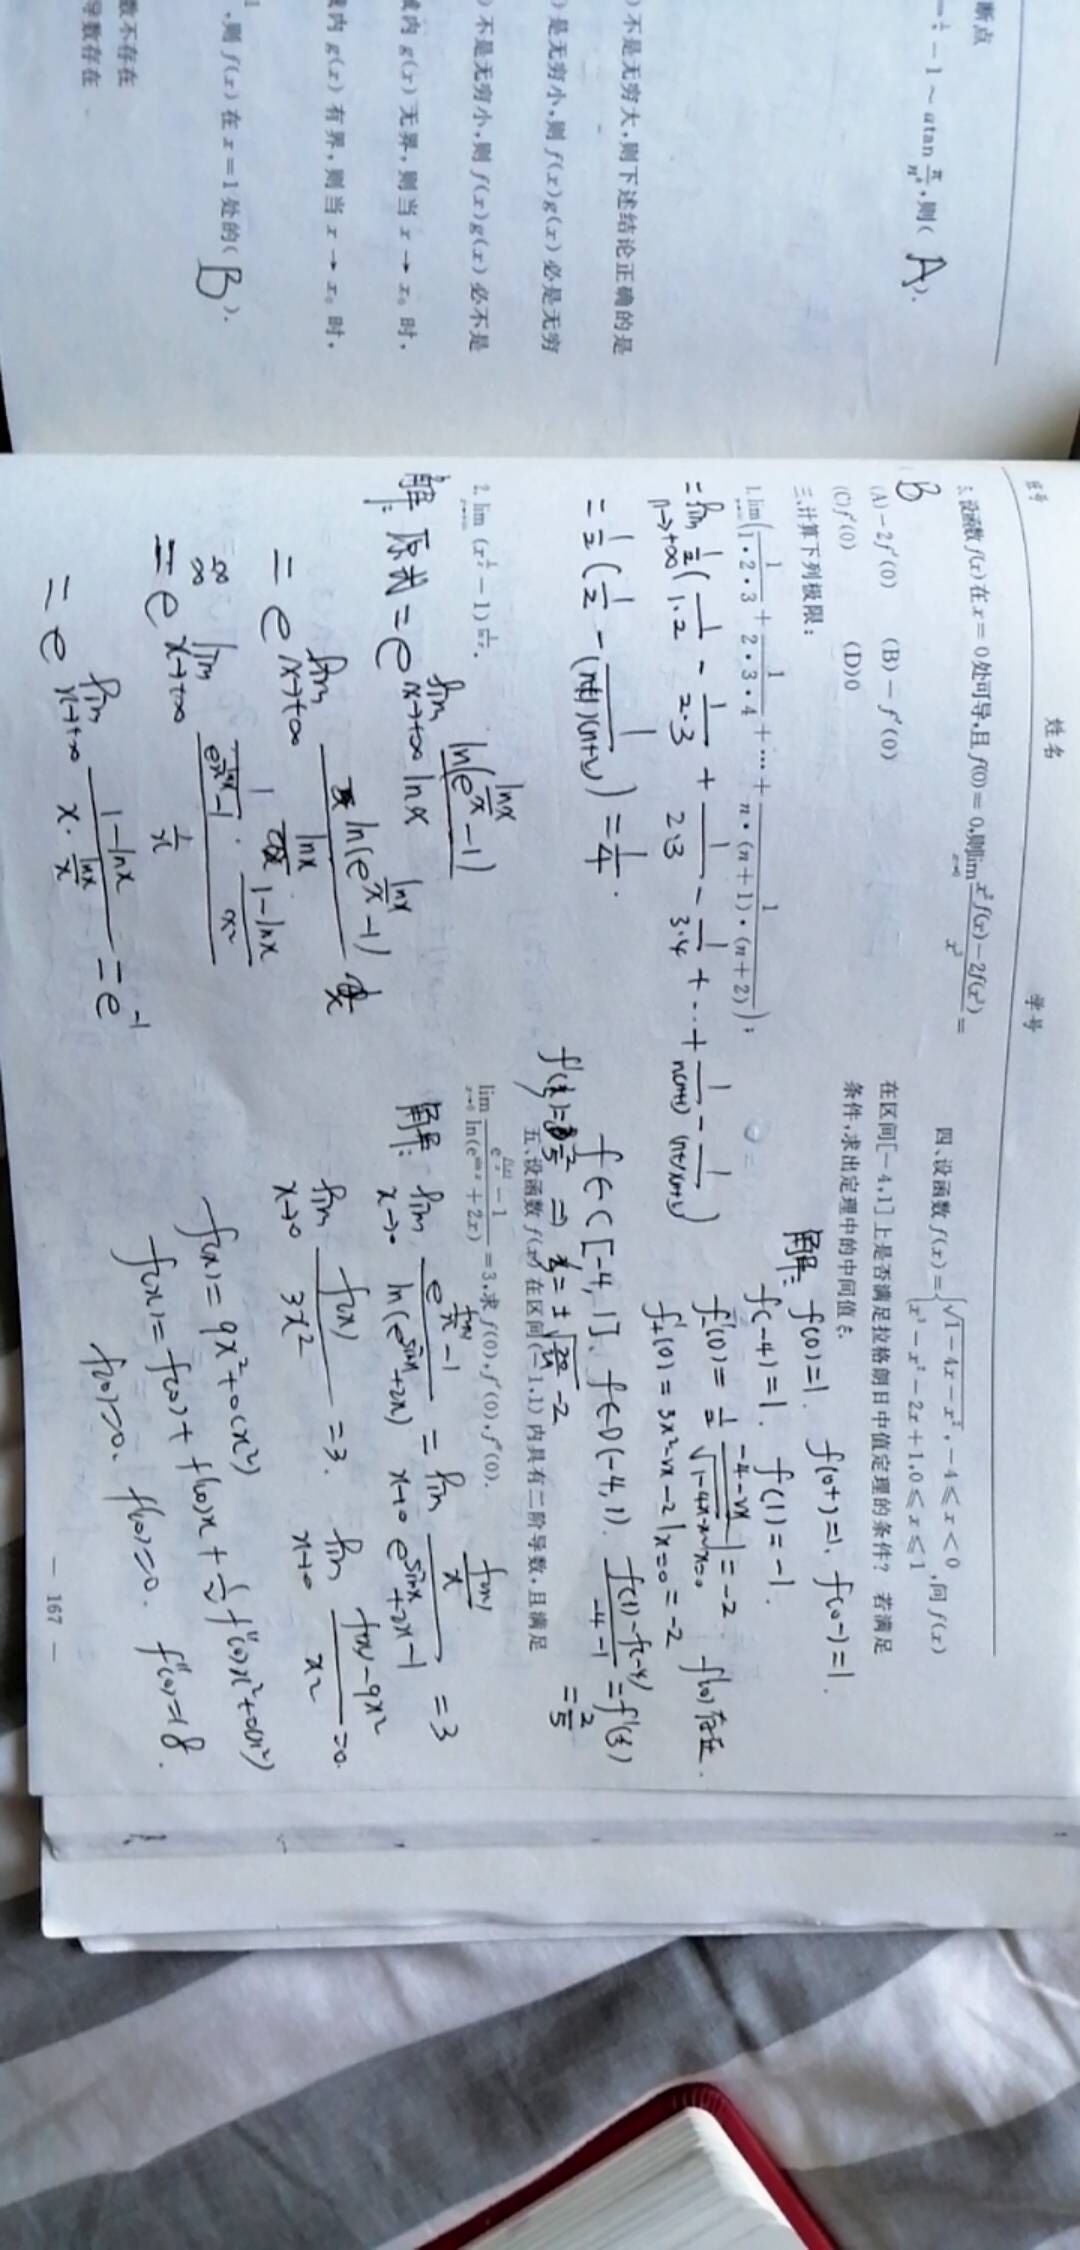 断点
−1～atan π/n^k,则( A ).
)不是无穷大,则下述结论正确的是
)是无穷小,则 f(x)g(x)必是无穷
)不是无穷小,则 f(x)g(x)必不是
域内 g(x)无界,则当 x→x₀ 时,
域内 g(x)有界,则当 x→x₀ 时,
,则 f(x)在 x=1 处的( B ).
数不存在
导数存在
姓名 学号
5.设函数 f(x)在 x=0 处可导,且 f(0)=0,则lim x→0 (x²f(x)−2f(x³))/x³ =
( B
(A)−2f′(0) (B)−f′(0)
(C)f′(0) (D)0
三、计算下列极限:
1. lim(1/(1·2·3)+1/(2·3·4)+…+1/(n·(n+1)·(n+2)));
=lim n→+∞ 1/2(1/(1·2)−1/(2·3)+1/(2·3)−1/(3·4)+…+1/(n(n+1))−1/((n+1)(n+2)))
=1/2(1/2−1/((n+1)(n+2)))=1/4.
2. lim x→+∞ (x^(1/x)−1)^(1/ln x).
解: 原式=e^(lim x→+∞ ln(e^(lnx/x)−1)/lnx)
=e^(lim x→+∞ ln(e^(lnx/x)−1)/lnx)
∞/∞
=e^(lim x→+∞ (1/(e^(lnx/x)−1)·(1−lnx)/x²)/(1/x))
=e^(lim x→+∞ (1−lnx)/(x·lnx/x))=e^(−1)
四、设函数 f(x)={√(1−4x−x²),−4≤x<0 ,问 f(x)
x³−x²−2x+1,0≤x≤1
在区间[−4,1]上是否满足拉格朗日中值定理的条件? 若满足
条件,求出定理中的中间值 ξ.
解: f(0)=1. f(0+)=1. f(0−)=1.
f(−4)=1. f(1)=−1.
f′₋(0)=1/2 (−4−2x)/√(1−4x−x²)|x=0=−2. f′(0)存在.
f′₊(0)=3x²−2x−2|x=0=−2
f∈C[−4,1]. f∈D(−4,1). (f(1)−f(−4))/(−4−1)=f′(ξ)
=2/5
五、设函数 f(x)在区间(−1,1)内具有二阶导数,且满足
lim x→0 (e^(f(x)/x)−1)/ln(e^(sin x)+2x)=3,求 f(0),f′(0),f″(0).
解: lim x→0 (e^(f(x)/x)−1)/ln(e^(sinx)+2x)=lim x→0 (f(x)/x)/(e^(sinx)+2x−1)=3
lim x→0 f(x)/3x²=3. lim x→0 (f(x)−9x²)/x²=0.
f(x)=9x²+o(x²)
f(x)=f(0)+f′(0)x+1/2f″(0)x²+o(x²)
f(0)=0. f′(0)=0. f″(0)=18.
— 167 —